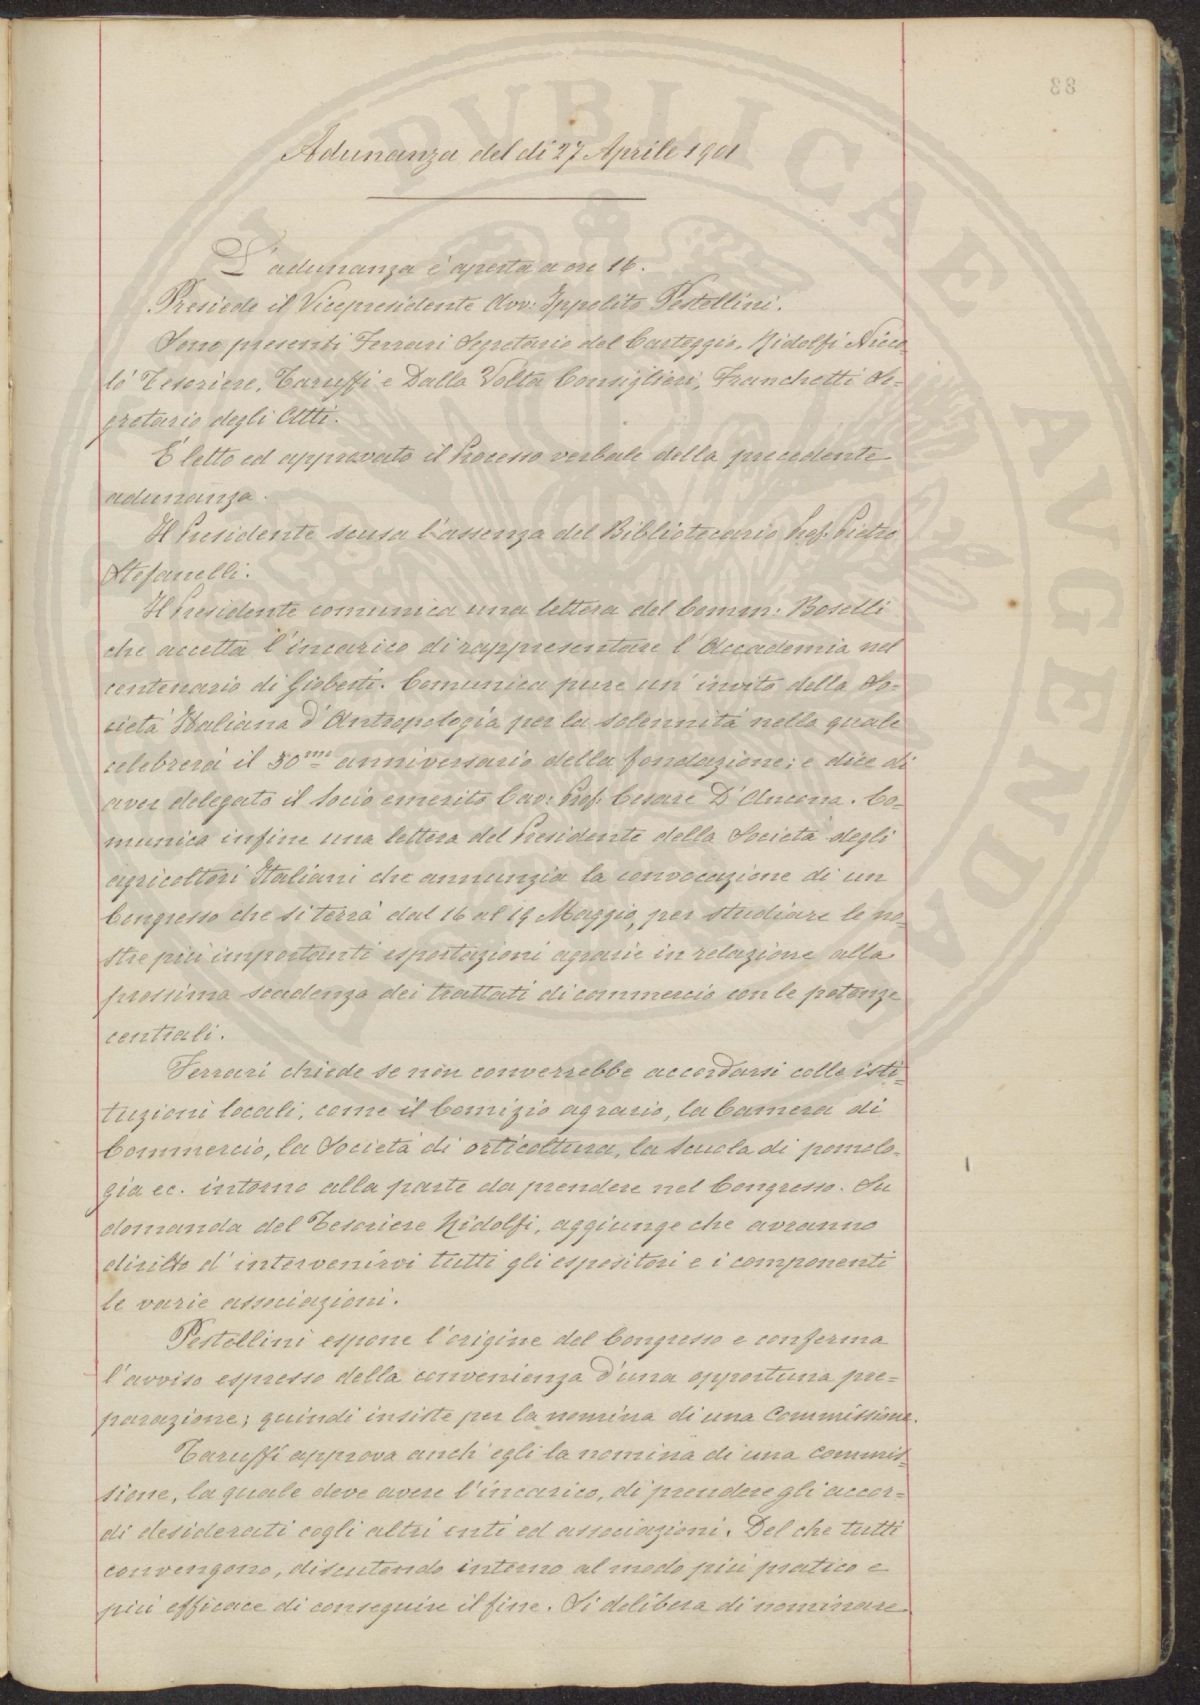 33
Adunanza del dì 27 Aprile 1901
L'adunanza è aperta a ore 16.
Presiede il Vicepresidente Avv: Ippolito Pestellini.
Sono presenti Ferrari Segretario del Carteggio, Ridolfi Nicco-
lò Tesoriere, Taruffi e Dalla Volta Consiglieri, Franchetti Se-
gretario degli Atti.
È letto ed approvato il Processo verbale della precedente
adunanza.
Il Presidente scusa l'assenza del Bibliotecario Prof. Pietro
Stefanelli.
Il Presidente comunica una lettera del Comm: Boselli
che accetta l'incarico di rappresentare l'Accademia nel
centenario di Gioberti. Comunica pure un'invito della So-
cietà Italiana d'Antropologia per la solennità nella quale
celebrerà il 30mo anniversario della fondazione; e dice di
aver delegato il Socio emerito Cav: Prof. Cesare D'Ancona. Co-
munica infine una lettera del Presidente della Società degli
agricoltori Italiani che annunzia la convocazione di un
Congresso che si terrà dal 16 al 19 Maggio, per studiare le no-
stre più importanti esportazioni agrarie in relazione alla
prossima scadenza dei trattati di commercio con le potenze
centrali.
Ferrari chiede se non converrebbe accordarsi colle isti-
tuzioni locali, come il Comizio agrario, la Camera di
Commercio, la Società di orticoltura, la Scuola di pomolo-
gia ec. intorno alla parte da prendere nel Congresso. Su
domanda del Tesoriere Ridolfi, aggiunge che avranno
diritto d'intervenirvi tutti gli espositori e i componenti
le varie associazioni.
Pestellini espone l'origine del Congresso e conferma
l'avviso espresso della convenienza d'una opportuna pre-
parazione; quindi insiste per la nomina di una Commissione.
Taruffi approva anch'egli la nomina di una Commis-
sione, la quale deve avere l'incarico, di prendere gli accor-
di desiderati cogli altri enti ed associazioni. Del che tutti
convengono, discutendo intorno al modo più pratico e
più efficace di conseguire il fine. Si delibera di nominare